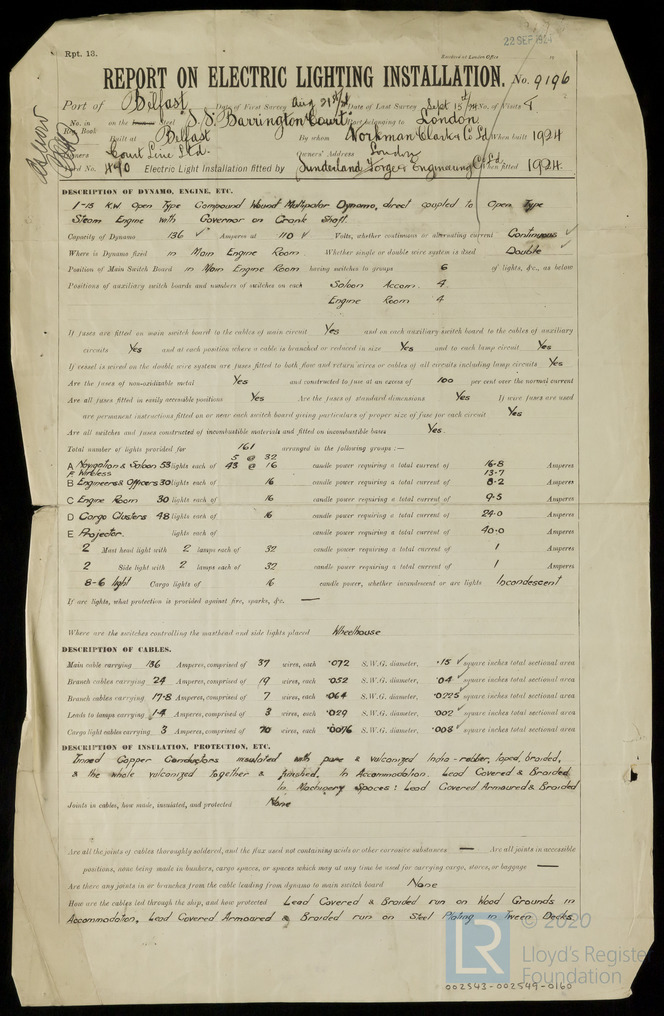 Rpt. 13.
22 SEP 1924
Received at London Office
REPORT ON ELECTRIC LIGHTING INSTALLATION. No. 9196
Port of Belfast Date of First Survey Aug 21st/24 Date of Last Survey Sept 15th/24 No. of Visits 4
No. in on the Iron or Steel S.S. "Barrington Court" Port belonging to London
Reg. Book Built at Belfast By whom Workman Clark & Co Ld When built 1924
Owners Court Line Ltd. Owners' Address London
Yard No. 490 Electric Light Installation fitted by Sunderland Forge & Engineering Co Ld When fitted 1924.
DESCRIPTION OF DYNAMO, ENGINE, ETC.
1-15 K.W Open Type Compound Wound Multipolar Dynamo, direct coupled to Open Type
Steam Engine with Governor on Crank Shaft.
Capacity of Dynamo 136 Amperes at 110 Volts, whether continuous or alternating current Continuous
Where is Dynamo fixed in Main Engine Room. Whether single or double wire system is used Double
Position of Main Switch Board in Main Engine Room having switches to groups 6 of lights, &c., as below
Positions of auxiliary switch boards and numbers of switches on each Saloon Accom. 4.
Engine Room 4
If fuses are fitted on main switch board to the cables of main circuit Yes and on each auxiliary switch board to the cables of auxiliary
circuits Yes and at each position where a cable is branched or reduced in size Yes and to each lamp circuit Yes
If vessel is wired on the double wire system are fuses fitted to both flow and return wires or cables of all circuits including lamp circuits Yes
Are the fuses of non-oxidizable metal Yes and constructed to fuse at an excess of 100 per cent over the normal current
Are all fuses fitted in easily accessible positions Yes Are the fuses of standard dimensions Yes If wire fuses are used
are permanent instructions fitted on or near each switch board giving particulars of proper size of fuse for each circuit Yes
Are all switches and fuses constructed of incombustible materials and fitted on incombustible bases Yes.
Total number of lights provided for 161 arranged in the following groups :—
5 @ 32
A Navigation & Saloon 53 lights each of 48 @ 16 candle power requiring a total current of 16·8 Amperes
F Wireless 13·7
B Engineers & Officers 30 lights each of 16 candle power requiring a total current of 8·2 Amperes
C Engine Room 30 lights each of 16 candle power requiring a total current of 9·5 Amperes
D Cargo Clusters 48 lights each of 16 candle power requiring a total current of 24·0 Amperes
E Projector. lights each of candle power requiring a total current of 40·0 Amperes
2 Mast head light with 2 lamps each of 32 candle power requiring a total current of 1 Amperes
2 Side light with 2 lamps each of 32 candle power requiring a total current of 1 Amperes
8-6 light Cargo lights of 16 candle power, whether incandescent or arc lights Incandescent
If arc lights, what protection is provided against fire, sparks, &c. —
Where are the switches controlling the masthead and side lights placed Wheelhouse
DESCRIPTION OF CABLES.
Main cable carrying 136 Amperes, comprised of 37 wires, each ·072 S.W.G. diameter, ·15 square inches total sectional area
Branch cables carrying 24 Amperes, comprised of 19 wires, each ·052 S.W.G. diameter, ·04 square inches total sectional area
Branch cables carrying 17·8 Amperes, comprised of 7 wires, each ·064 S.W.G. diameter, ·0225 square inches total sectional area
Leads to lamps carrying 1·4 Amperes, comprised of 3 wires, each ·029 S.W.G. diameter, ·002 square inches total sectional area
Cargo light cables carrying 3 Amperes, comprised of 70 wires, each ·0076 S.W.G. diameter, ·003 square inches total sectional area
DESCRIPTION OF INSULATION, PROTECTION, ETC.
Tinned Copper Conductors insulated with pure & vulcanized India-rubber, taped, braided,
& the whole vulcanized together & finished. In Accommodation. Lead Covered & Braided.
In Machinery Spaces: Lead Covered Armoured & Braided
Joints in cables, how made, insulated, and protected None
Are all the joints of cables thoroughly soldered, and the flux used not containing acids or other corrosive substances — Are all joints in accessible
positions, none being made in bunkers, cargo spaces, or spaces which may at any time be used for carrying cargo, stores, or baggage —
Are there any joints in or branches from the cable leading from dynamo to main switch board None
How are the cables led through the ship, and how protected Lead Covered & Braided run on Wood Grounds in
Accommodation, Lead Covered Armoured & Braided run on Steel Plating in Tween Decks
© 2020
LR
Lloyd's Register
Foundation
002543-002549-0160